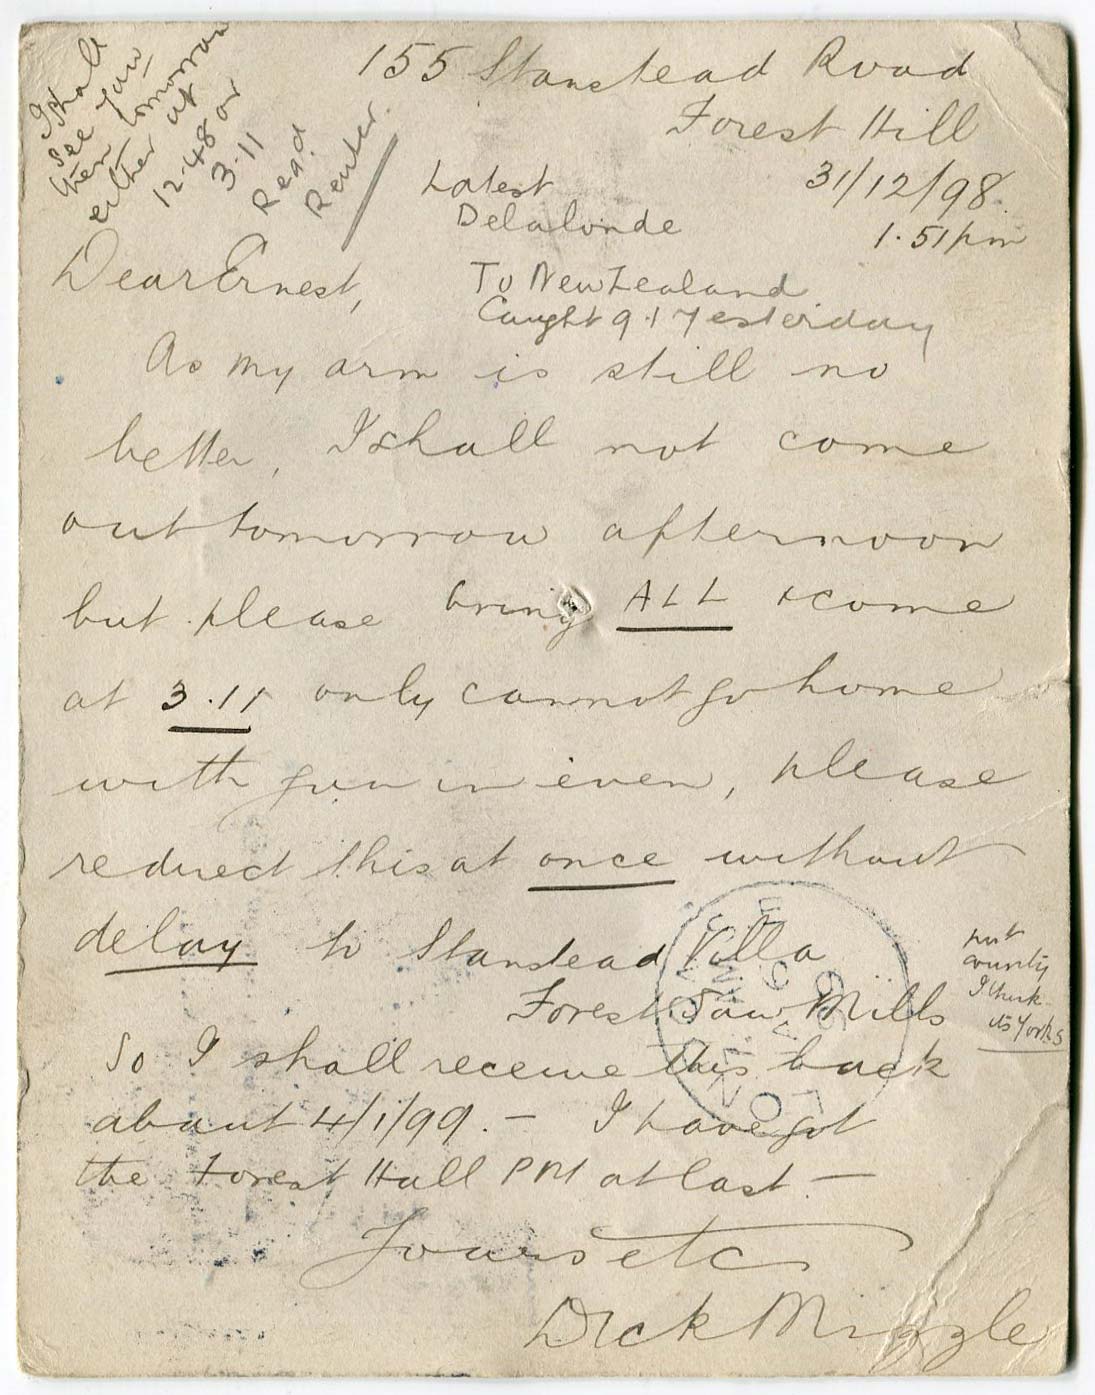 I shall
see you
then tomorrow
either at
12.48 or
3.11
Read
Reuter.
155 Stanstead Road
Forest Hill
31/12/98.
1.51 pm
Latest
Delalonde
To New Zealand
Caught 9.1 Yesterday
Dear Ernest,
As my arm is still no
better, I shall not come
out tomorrow afternoon
but please bring ALL & come
at 3.11 only cannot go home
with you in even, please
redirect this at once without
delay to Stanstead Villa
Forest Saw Mills
not
county
I think
its Yorks
So I shall receive this back
about 4/1/99. — I have got
the Forest Hall PM at last. —
Yours etc
Dick Mizzle
LONDON
99